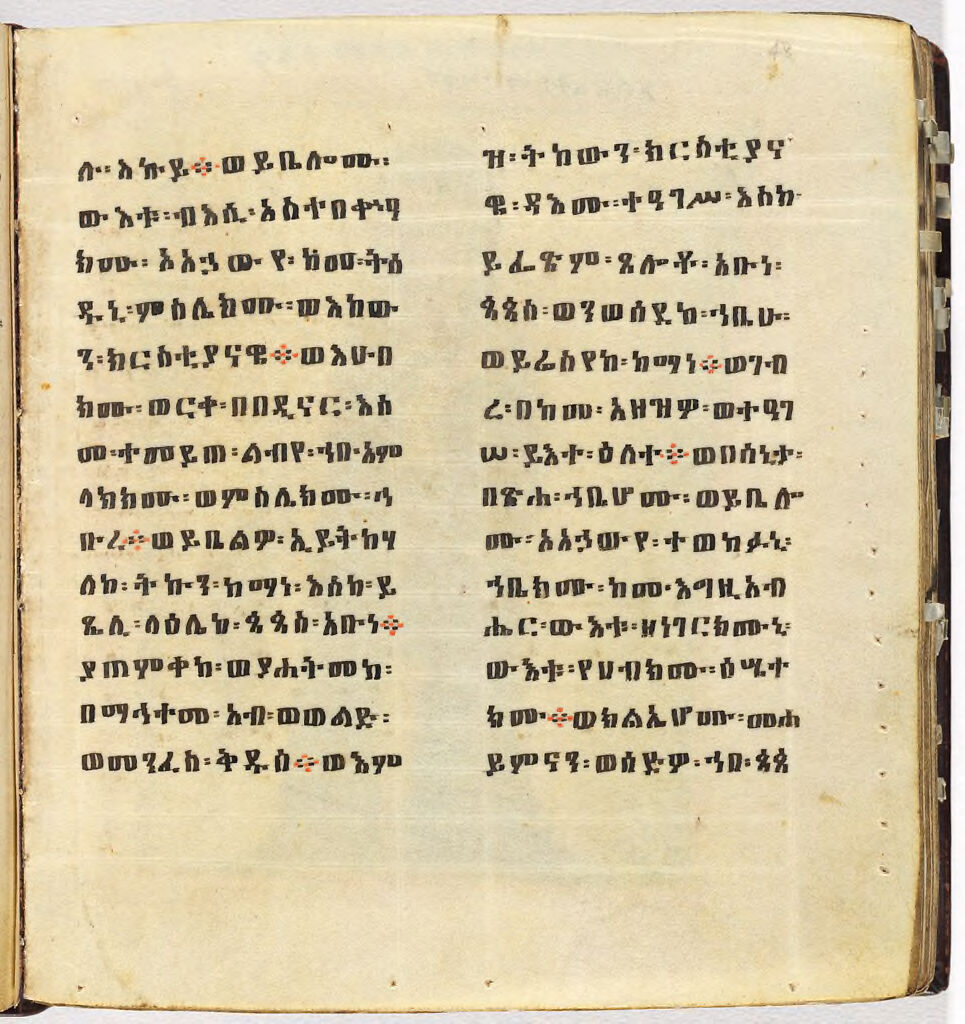 48
ሉ፡ እኩይ፨ ወይቤሎሙ፡
ውእቱ፡ ብእሲ፡ አስተበቍዓ
ክሙ፡ አአኃውየ፡ ከመ፡ ትስ
ዱኒ፡ ምስሌክሙ፡ ወእከው
ን፡ ክርስቲያናዌ፨ ወእሁብ
ክሙ፡ ወርቀ፡ በበዲናር፡ እስ
መ፡ ተመይጠ፡ ልብየ፡ ኀበ፡ አም
ላክክሙ፡ ወምስሌክሙ፡ ኀ
ቡረ፨ ወይቤልዎ፡ ኢይትከሃ
ለከ፡ ትኩን፡ ከማነ፡ እስከ፡ ይ
ጼሊ፡ ላዕሌከ፡ ጳጳስ፡ አቡነ፨
ያጠምቀከ፡ ወያሐትመከ፡
በማኅተመ፡ አብ፡ ወወልድ፡
ወመንፈስ፡ ቅዱስ፨ ወእም
ዝ፡ ትከውን፡ ክርስቲያና
ዌ፡ ዳእሙ፡ ተዓገሥ፡ እስከ
ይፌጽም፡ ጸሎቶ፡ አቡነ፡
ጳጳስ፡ ወንወስደከ፡ ኀቤሁ፡
ወይሬስየከ፡ ከማነ፨ ወገብ
ረ፡ በከመ፡ አዘዝዎ፡ ወተዓገ
ሠ፡ ይእተ፡ ዕለተ፨ ወበሰኒታ፡
በጽሐ፡ ኀቤሆሙ፡ ወይቤሎ
ሙ፡ አአኃውየ፡ ተወከፉኒ፡
ኀቤክሙ፡ ከመ፡ እግዚአብ
ሔር፡ ውእቱ፡ ዘነገርክሙኒ፡
ውእቱ፡ የሀብክሙ፡ ዕሤተ
ክሙ፨ ወክልኤሆሙ፡ መሐ
ይምናን፡ ወሰድዎ፡ ኀበ፡ ጳጳ